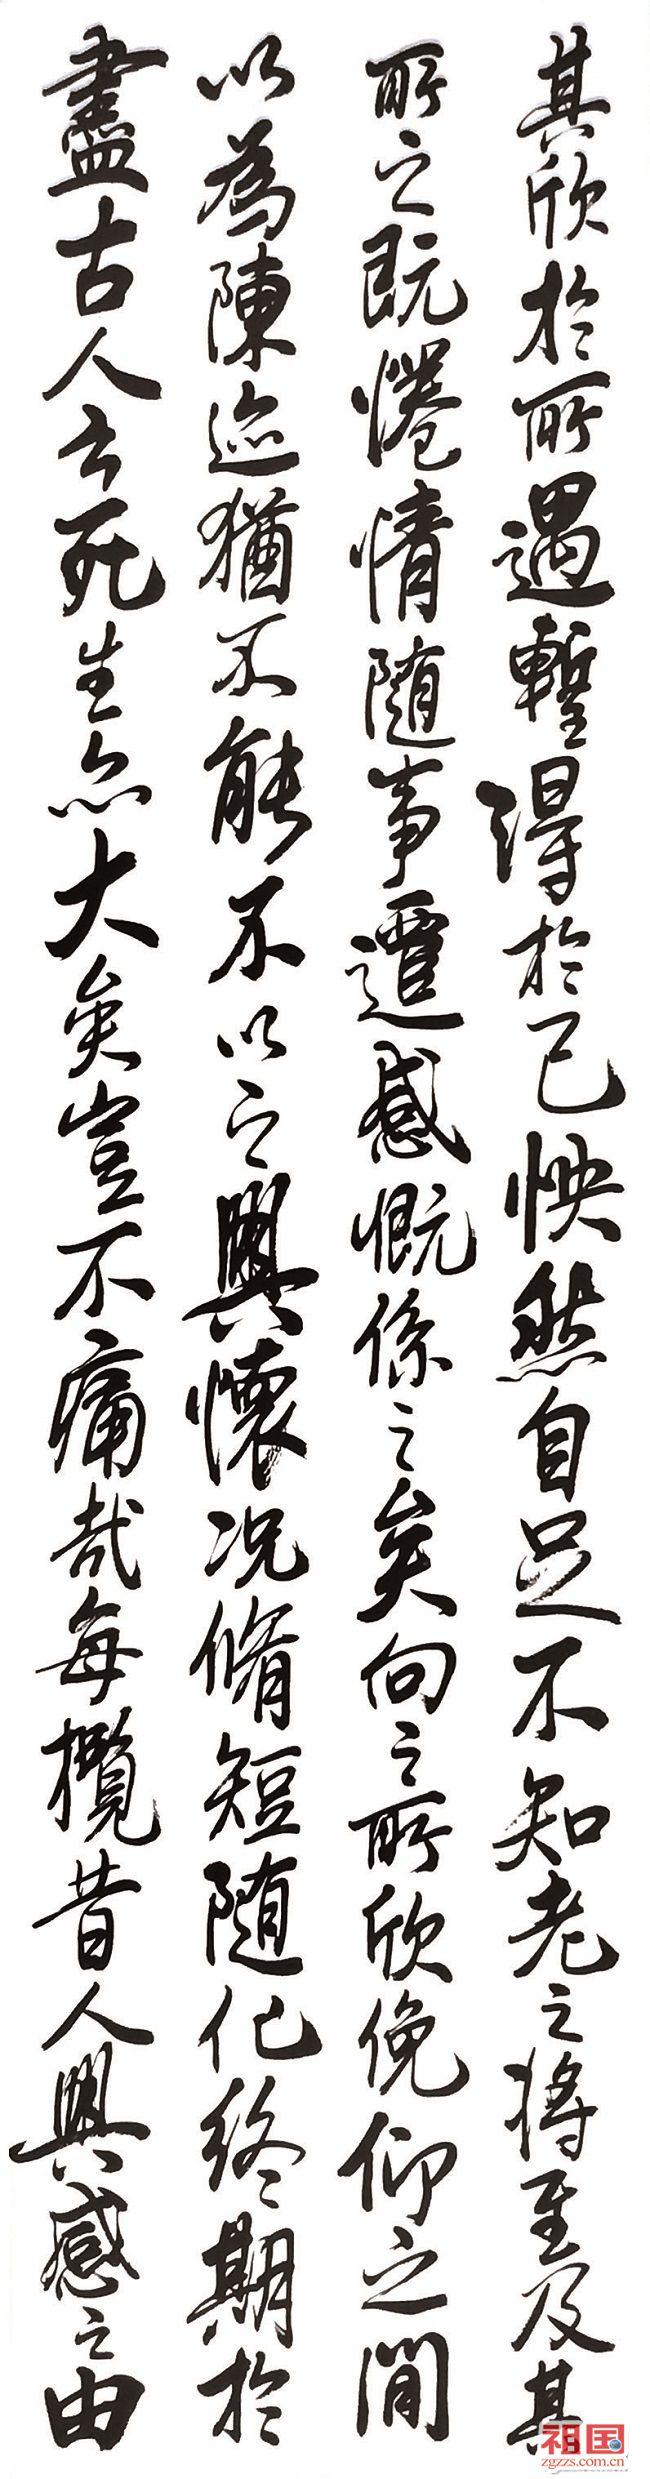 其欣於所遇暫得於己怏然自足不知老之將至及其
所之既惓情隨事遷感慨係之矣向之所欣俛仰之閒
以為陳迹猶不能不以之興懷況脩短隨化終期於
盡古人云死生亦大矣豈不痛哉每攬昔人興感之由
祖国
zgzzs.com.cn